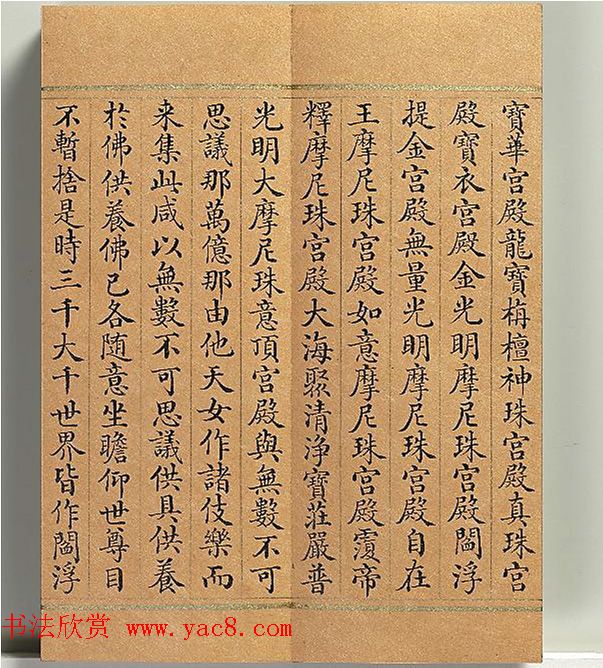 寶華宮殿龍寶栴檀神珠宮殿真珠宮
殿寶衣宮殿金光明摩尼珠宮殿閻浮
提金宮殿無量光明摩尼珠宮殿自在
王摩尼珠宮殿如意摩尼珠宮殿霣帝
釋摩尼珠宮殿大海聚清淨寶莊嚴普
光明大摩尼珠意頂宮殿與無數不可
思議那萬億那由他天女作諸伎樂而
来集此咸以無數不可思議供具供養
於佛供養佛已各随意坐瞻仰世尊目
不暫捨是時三千大千世界皆作閻浮
书法欣赏 www.yac8.com